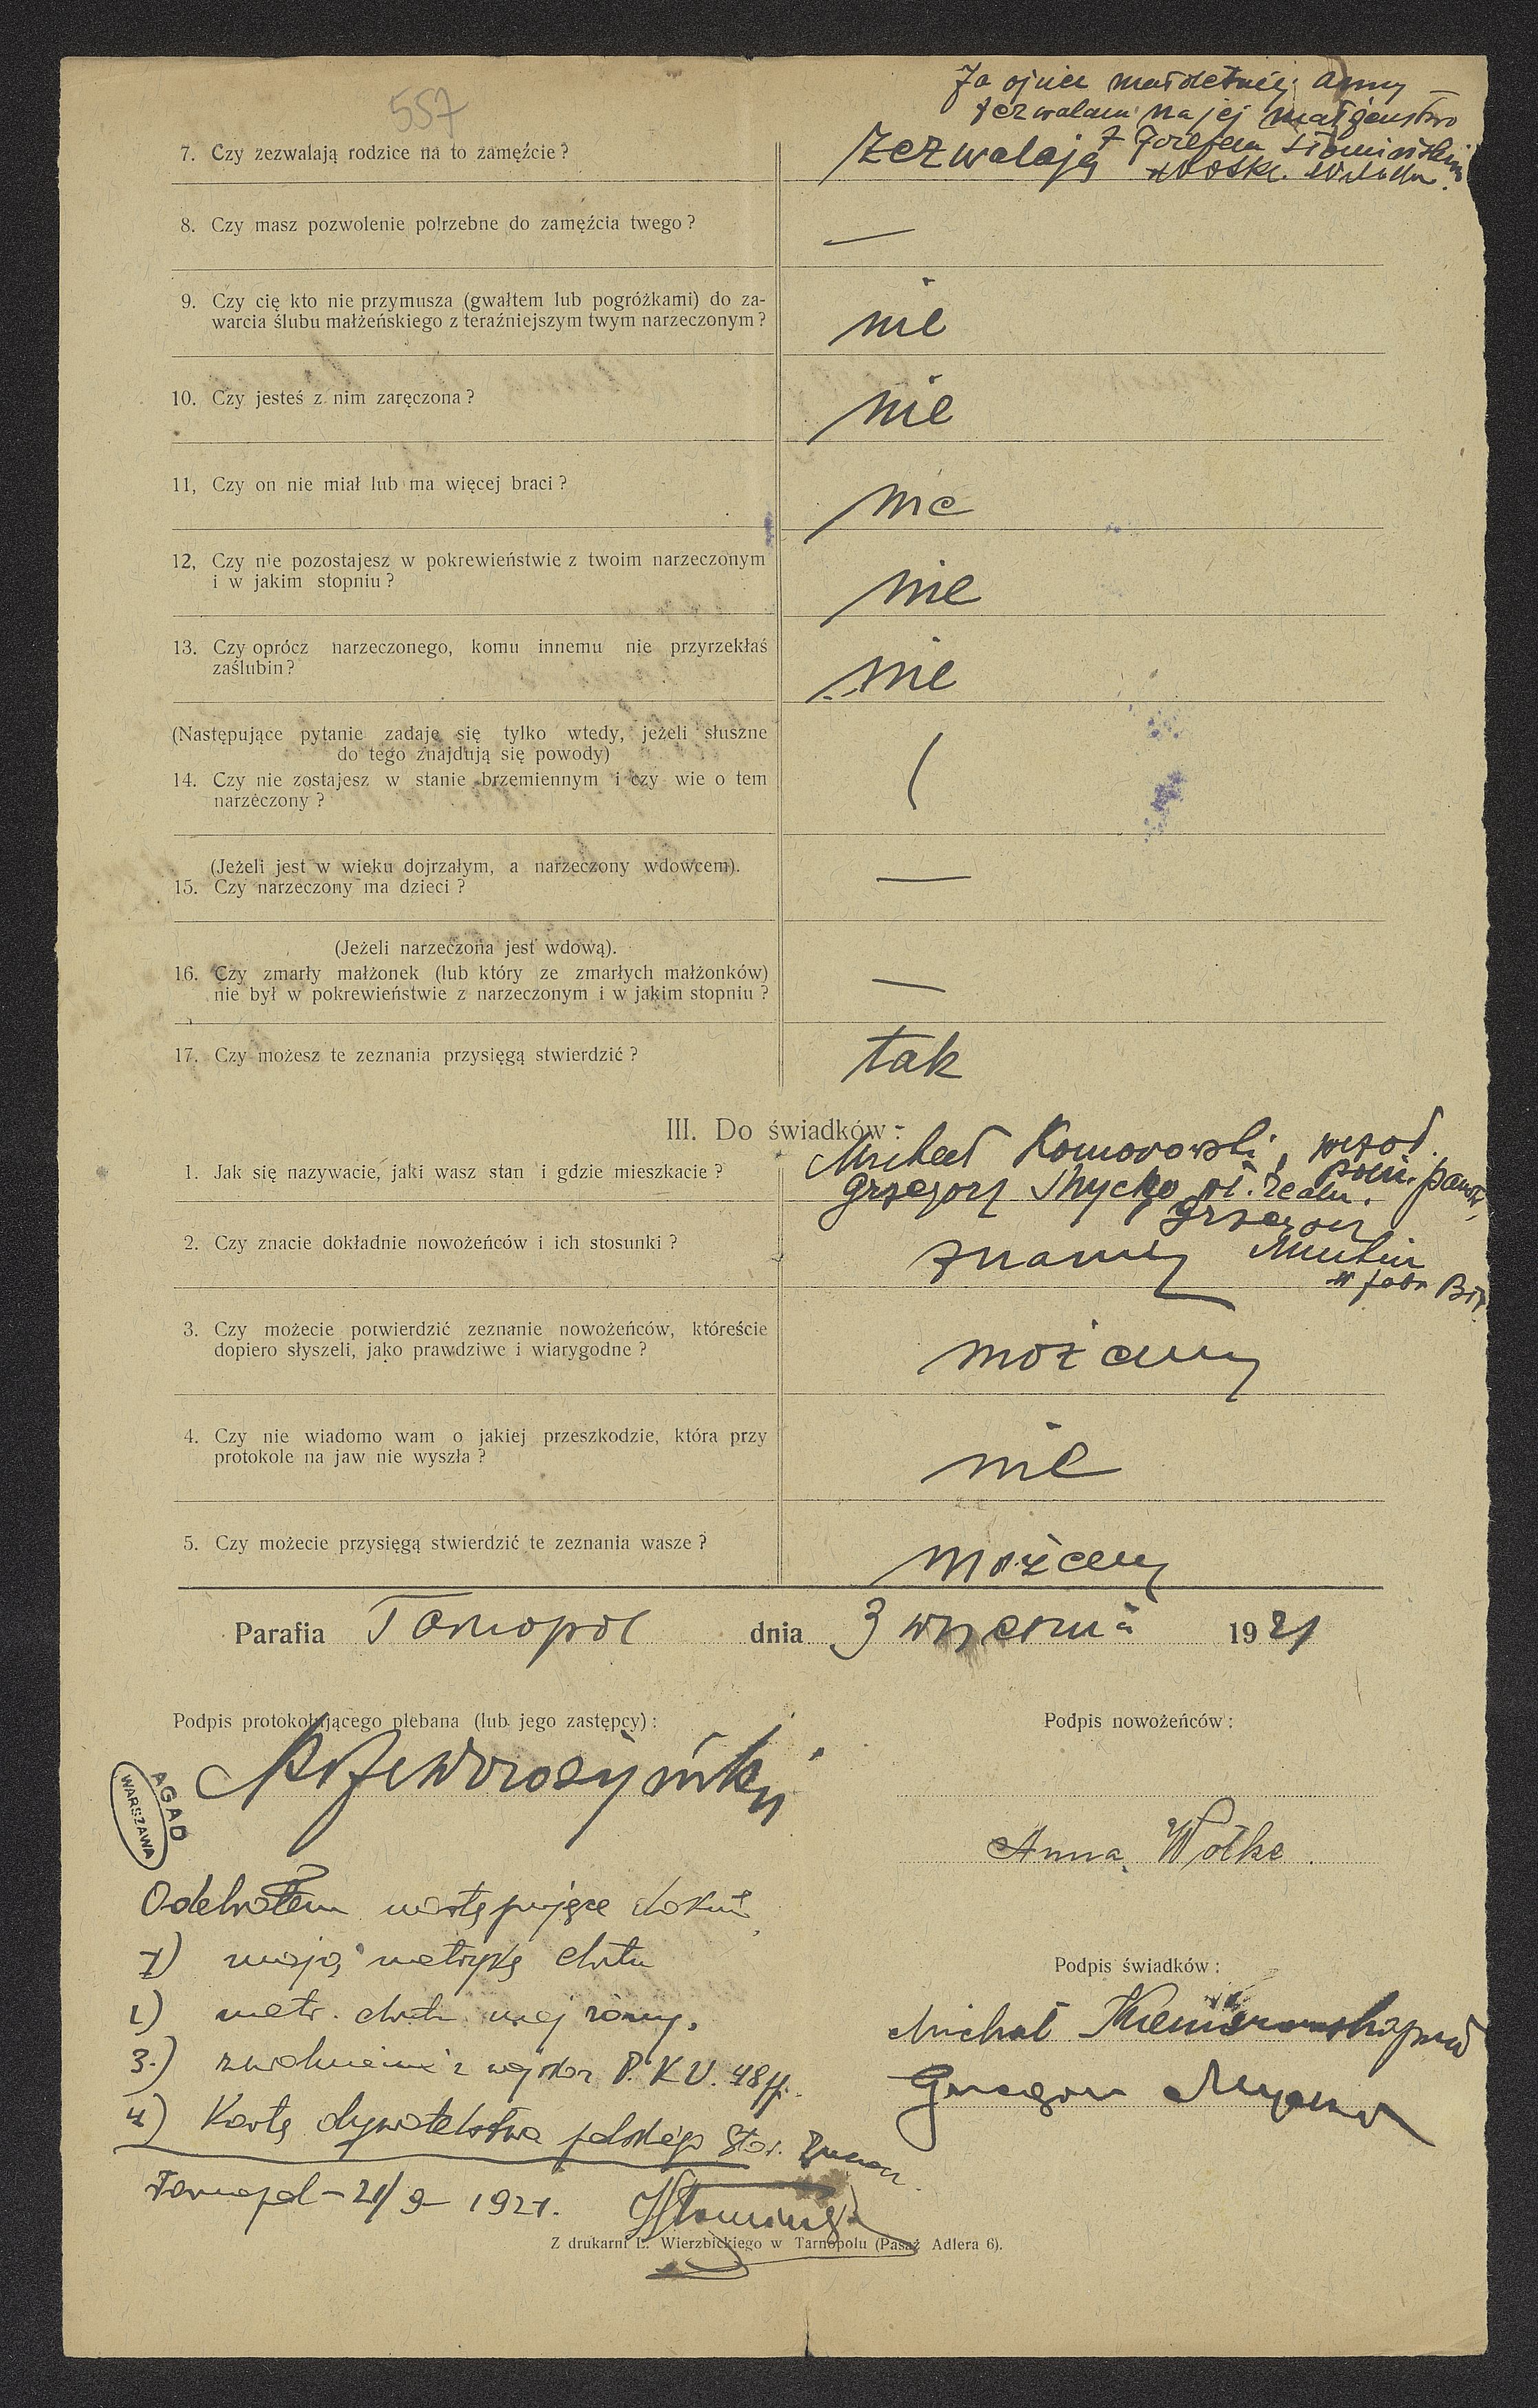 557
Ja ojciec małoletniej Anny
zezwalam na jej małżeństwo
z Józefem Słomińskim
7. Czy zezwalają rodzice na to zamęźcie ?
zezwalają
8. Czy masz pozwolenie potrzebne do zamęźcia twego ?
—
9. Czy cię kto nie przymusza (gwałtem lub pogróżkami) do za-
warcia ślubu małżeńskiego z teraźniejszym twym narzeczonym ?
nie
10. Czy jesteś z nim zaręczona ?
nie
11, Czy on nie miał lub ma więcej braci ?
nie
12, Czy nie pozostajesz w pokrewieństwie z twoim narzeczonym
i w jakim stopniu ?
nie
13. Czy oprócz narzeczonego, komu innemu nie przyrzekłaś
zaślubin ?
nie
(Następujące pytanie zadaje się tylko wtedy, jeżeli słuszne
do tego znajdują się powody)
14. Czy nie zostajesz w stanie brzemiennym i czy wie o tem
narzeczony ?
(Jeżeli jest w wieku dojrzałym, a narzeczony wdowcem).
15. Czy narzeczony ma dzieci ?
—
(Jeżeli narzeczona jest wdową).
16. Czy zmarły małżonek (lub który ze zmarłych małżonków)
nie był w pokrewieństwie z narzeczonym i w jakim stopniu ?
—
17. Czy możesz te zeznania przysięgą stwierdzić ?
tak
III. Do świadków :
1. Jak się nazywacie, jaki wasz stan i gdzie mieszkacie ?
Michał Komorowski,
Grzegorz
Grzegorz
2. Czy znacie dokładnie nowożeńców i ich stosunki ?
znamy
3. Czy możecie potwierdzić zeznanie nowożeńców, któreście
dopiero słyszeli, jako prawdziwe i wiarygodne ?
możemy
4. Czy nie wiadomo wam o jakiej przeszkodzie, która przy
protokole na jaw nie wyszła ?
nie
5. Czy możecie przysięgą stwierdzić te zeznania wasze ?
możemy
Parafia Tarnopol dnia 3 września 1921
Podpis protokołującego plebana (lub jego zastępcy) :
Podpis nowożeńców :
AGAD
WARSZAWA
Anna Wołke
Odebrałem następujące dokum.
1) moją metrykę chrztu
2) metr. chrztu mej żony.
3.) zwolnienie z wojska P. K. U. 48
4) Kartę obywatelstwa polskiego
Podpis świadków :
Michał
Grzegorz
Tarnopol – 21/9 1921.
Z drukarni L. Wierzbickiego w Tarnopolu (Pasaż Adlera 6).